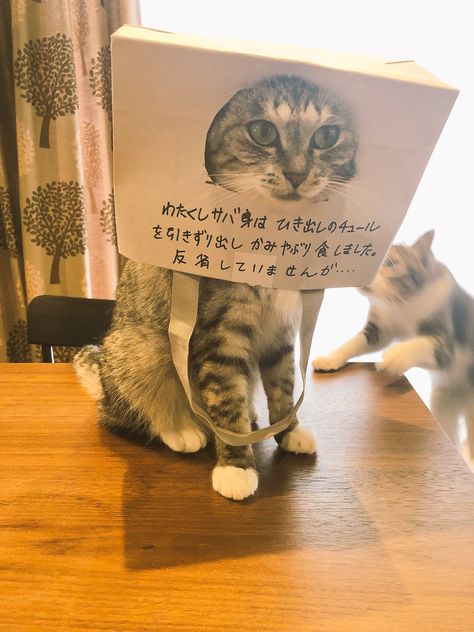 わたくしサバ身は ひき出しのチュール
を引きずり出し かみやぶり 食しました。
反省していませんが…